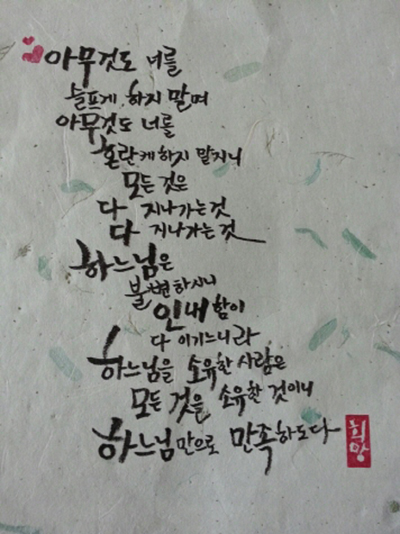 아무것도 너를
슬프게 하지 말며
아무것도 너를
혼란케 하지 말지니
모든 것은
다 지나가는 것
다 지나가는 것
하느님은
불변하시니
인내함이
다 이기느니라
하느님을 소유한 사람은
모든 것을 소유한 것이니
하느님만으로 만족하도다
희망